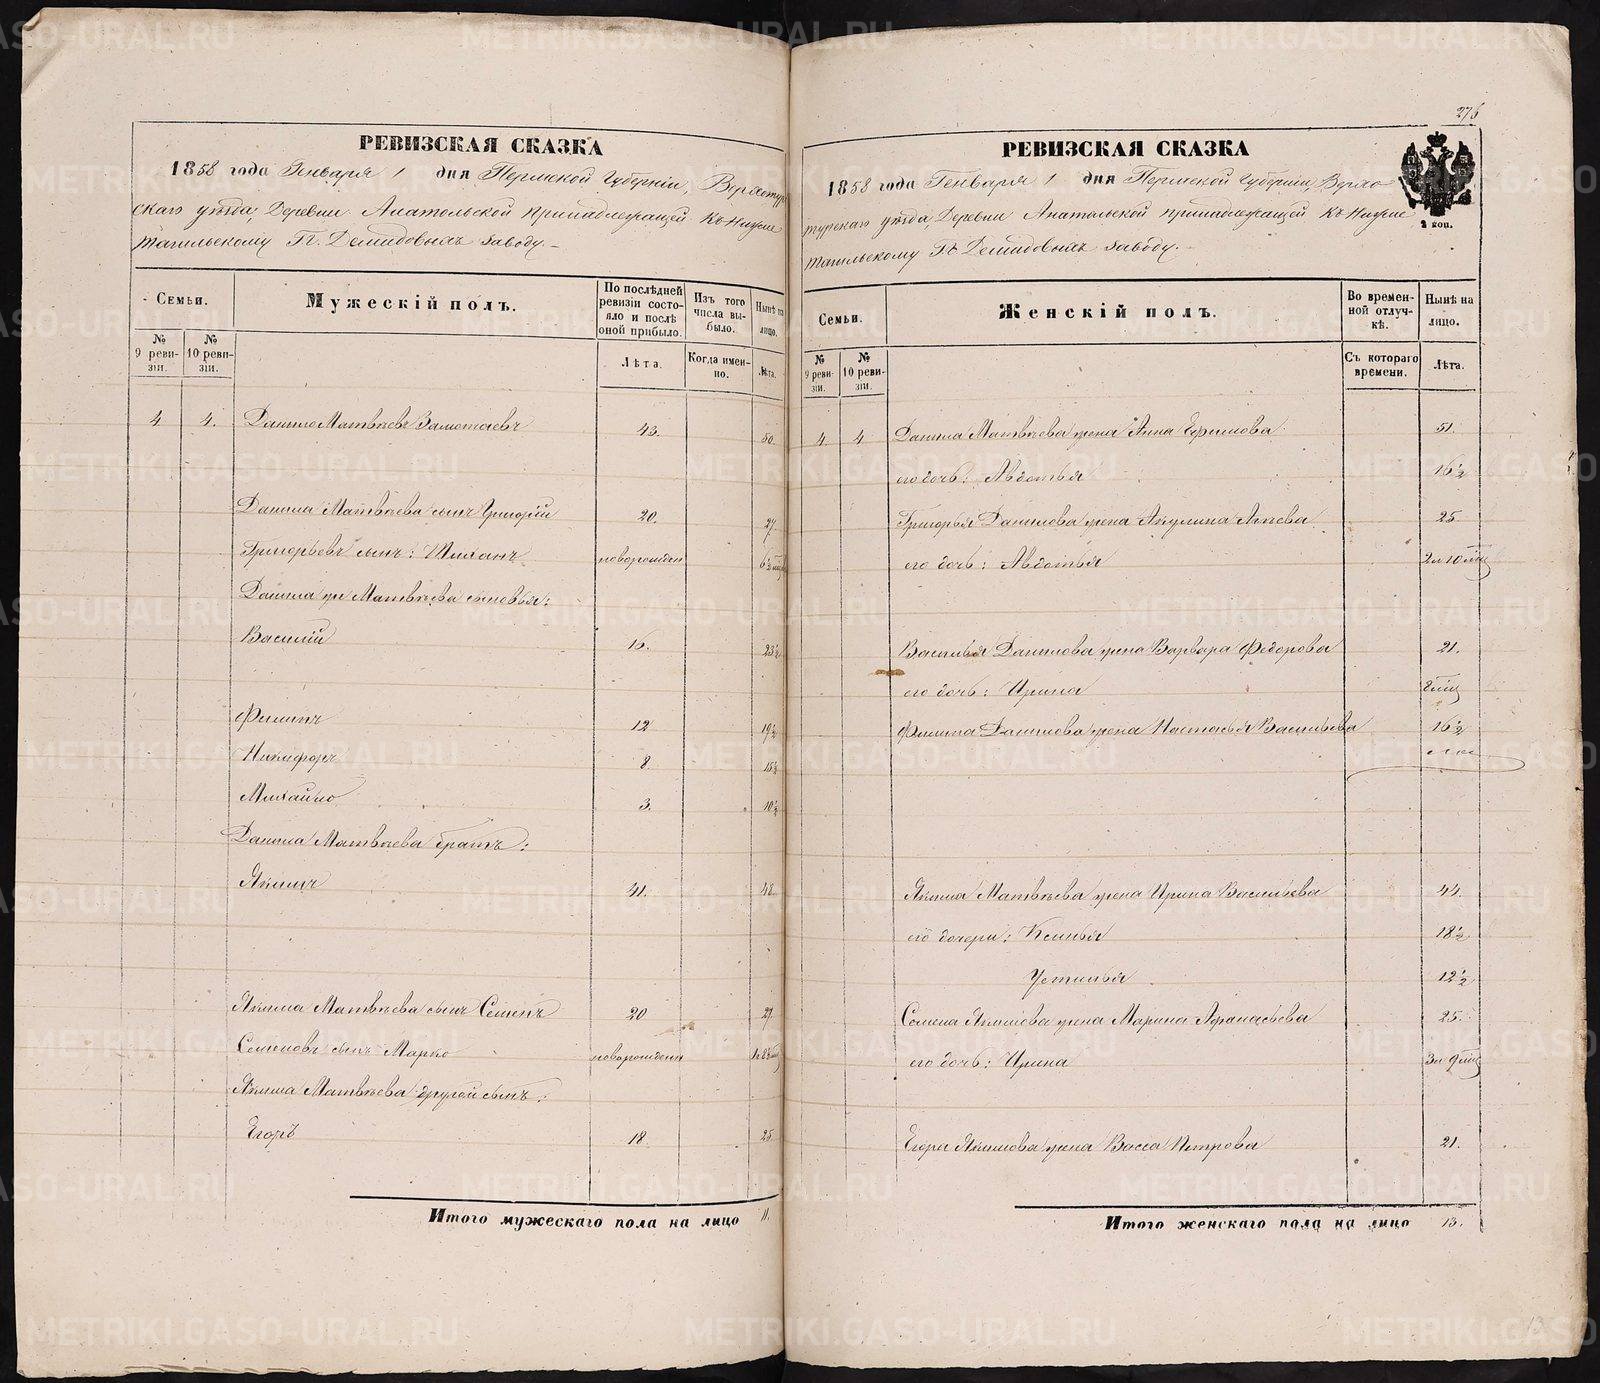 РЕВИЗСКАЯ СКАЗКА
1858 года Генваря 1 дня Пермской Губерніи, Верхотур
скаго уѣзда, Деревни Анатольской принадлежащей Къ Нижне
тагильскому Гг. Демидовыхъ заводу.
Семьи.
Мужескій полъ.
По послѣдней ревизіи состояло и послѣ оной прибыло.
Изъ того числа выбыло.
Нынѣ на лицо.
№ 9 ревизіи.
№ 10 ревизіи.
Лѣта.
Когда именно.
Лѣта.
4 4. Данило Матвѣевъ 43. 50.
Данила Матвѣева сынъ Григорій 20. 27.
Григорьевъ сынъ: новорожден
Данила же Матвѣева сыновья:
Василій 16. 23½
Филипъ 12 19½
Никифоръ 8. 15½
Михайло 3. 10½
Данила Матвѣева братъ:
Якимъ 41. 48.
Якима Матвѣева сынъ Семенъ 20 27
Семеновъ сынъ Марко новорожден
Якима Матвѣева другой сынъ:
Егоръ 18. 25
Итого мужескаго пола на лицо 11.
276
РЕВИЗСКАЯ СКАЗКА
1858 года Генваря 1 дня Пермской Губерніи, Верхо
турскаго уѣзда, Деревни Анатольской принадлежащей Къ Нижне
тагильскому Гг. Демидовыхъ заводу.
2 коп.
Семьи.
Женскій полъ.
Во временной отлучкѣ.
Нынѣ на лицо.
№ 9 ревизіи.
№ 10 ревизіи.
Съ котораго времени.
Лѣта.
4. 4 Данила Матвѣева жена Анна Ефимова 51.
его дочь: Авдотья 16½
Григорья Данилова жена Акулина 25
его дочь: Авдотья 2 л 10 мѣс
Василья Данилова жена Варвара Федорова 21.
его дочь: Ирина 8 мѣс
Филипа Данилова жена Настасья Васильева 16½
Якима Матвѣева жена Ирина Васильева 44.
его дочери: Ксенья 18½
Устинья 12½
Семена Якимова жена Марина Афанасьева 25.
его дочь: Ирина 3 л 9 мѣс
Егора Якимова жена Васса Петрова 21.
Итого женскаго пола на лицо 13.
13
METRIKI.GASO-URAL.RU